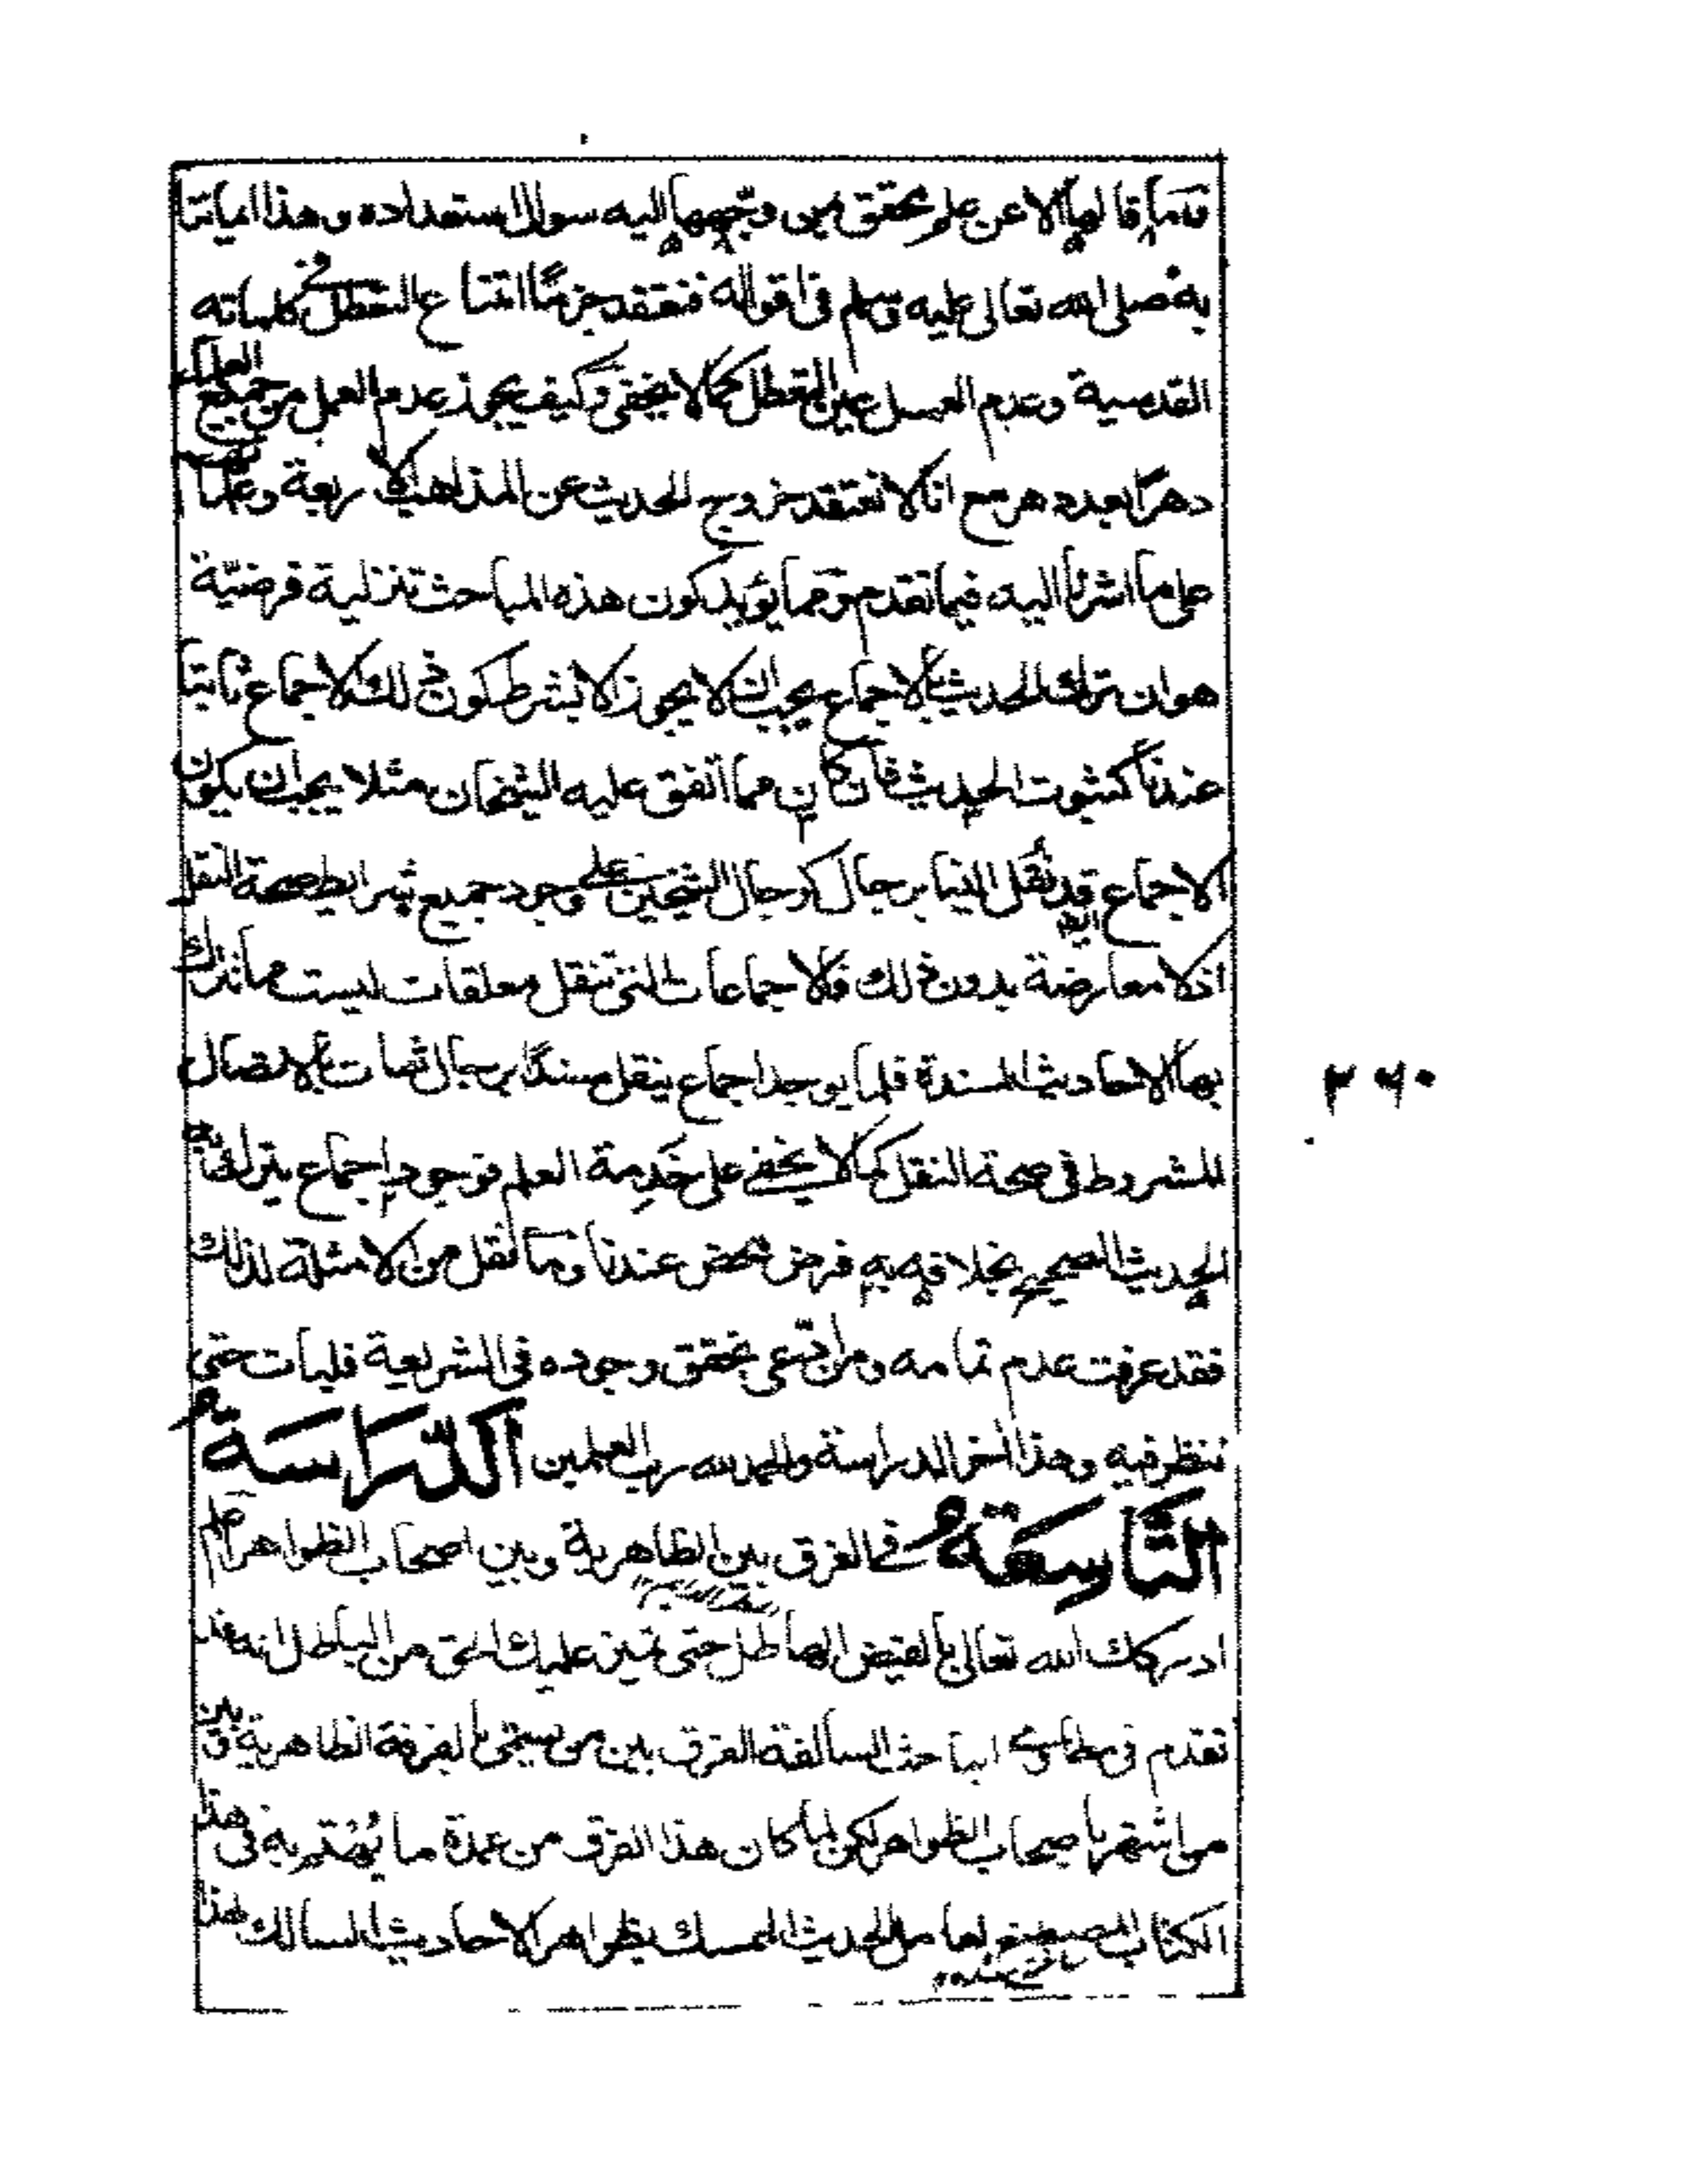 فما قالها الا عن علم محقق فيمن وجهها اليه سوال استعداده وهذا ايماننا
به صلى الله تعالى عليه وسلم فى اقواله فنعتقد جزما امتناع التعطل فى كلماته
القدسية وعدم العمل عين التعطل كما لا يخفى وكيف يجوز عدم العمل من جميع العلماء
دهرا بعد دهر مع انا لا نعتقد خروج الحديث عن المذاهب الاربعة وعلمائهم
على ما اشرنا اليه فيما تقدم ومما يؤيد كون هذه المباحث تنزلية فرضية
هو ان ترك الحديث بالاجماع يجب ان لا يجوز الا بشرط كون ذلك الاجماع ثابتا
عندنا كثبوت الحديث فان كان مما اتفق عليه الشيخان مثلا يجب ان يكون
الاجماع قد نقل الينا برجال كرجال الشيخين على وجود جميع شرايط صحة النقل
اذ لا معارضة بدون ذلك فالاجماعات التى تنقل معلقات ليست مما نترك
بها الاحاديث المسندة فلما يوجد اجماع ينقل مسندا برجال ثقات بالاتصال
للشروط فى صحة النقل كما لا يخفى على خدمة العلم فوجود اجماع يترك به
الحديث الصحيح بخلافه به فرض محض عندنا وما نقل من الامثلة لذلك
فقد عرفت عدم تمامه ومن ادعى تحقق وجوده فى الشريعة فليات حتى
ننظر فيه وهذا اخر الدراسة والحمد لله رب العلمين الدراسة
التاسعة فى الفرق بين الظاهرية وبين اصحاب الظواهر اعلم
ادركك الله تعالى بالفيض الهاطل حتى تميز عليك الحق من الباطل انه قد
تقدم فى مطاوى ابياحث السالفة الفرق بين من يسمى بالفرقة الظاهرية وبين
من اشتهر باصحاب الظواهر لكن لما كان هذا الفرق من عمدة ما يهتم به فى هذا
الكتاب لعامل الحديث المتمسك بظواهر الاحاديث السالك لهذا
٢٦٠